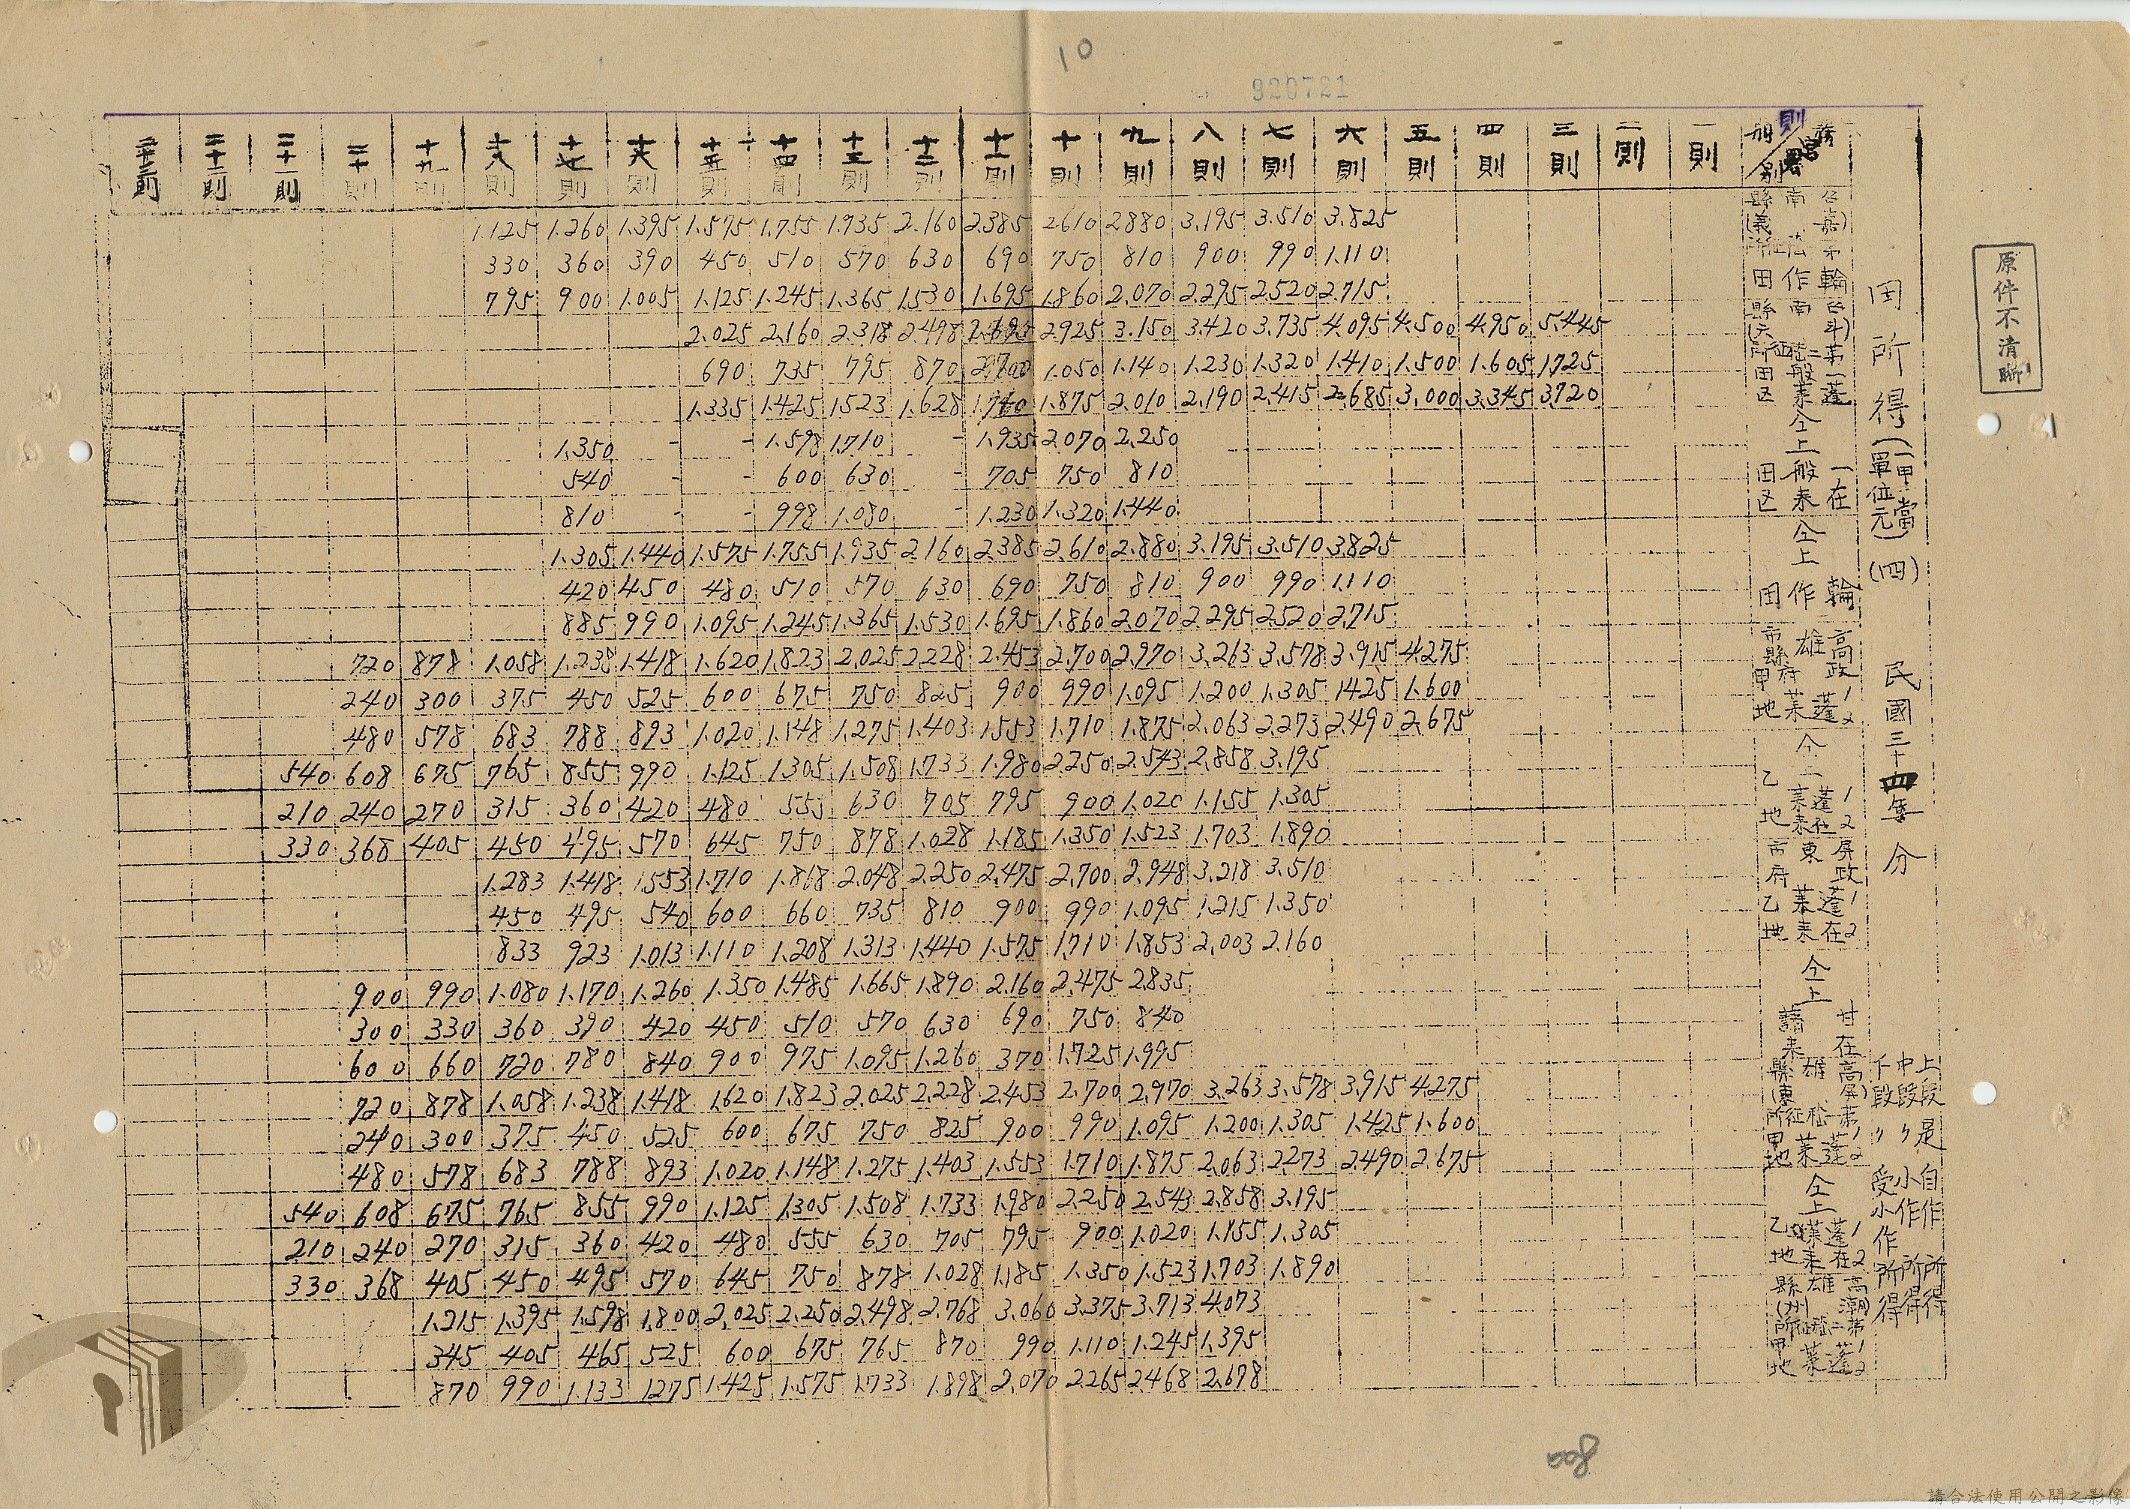 10
920721
原件不清晰
田所得(一甲當)(四) 民國三十四年分
(單位元)
上段是自作所得
中段〃小作所得
下段〃受小作所得
則別
一則 二則 三則 四則 五則 六則 七則 八則 九則 十則 十一則 十二則 十三則 十四則 十五則 十六則 十七則 十八則 十九則 二十則 二十一則 二十二則 二十三則
輪作田
3.825 3.510 3.195 2880 2610 2.385 2.160 1.935 1.755 1.575 1.395 1.260 1.125
1.110 990 900 810 750 690 630 570 510 450 390 360 330
2.715 2.520 2.295 2.070 1.860 1.695 1.530 1.365 1.245 1.125 1.005 900 795
5.445 4.950 4.500 4.095 3.735 3.420 3.150 2.925 2.498 2.318 2.160 2.025
1.725 1.605 1.500 1.410 1.320 1.230 1.140 1.050 870 795 735 690
3.720 3.345 3.000 2.685 2.415 2.190 2.010 1.875 1.628 1.523 1.425 1.335
仝上 一般田区 在来
2.250 2.070 1.935 - 1.710 1.598 - - 1.350
810 750 705 - 630 600 - - 540
1.440 1.320 1.230 - 1.080 998 - - 810
仝上 輪作田
3.825 3.510 3.195 2.880 2.610 2.385 2.160 1.935 1.755 1.575 1.440 1.305
1.110 990 900 810 750 690 630 570 510 480 450 420
2.715 2.520 2.295 2.070 1.860 1.695 1.530 1.365 1.245 1.095 990 885
高雄市縣政府 甲地 蓬萊1 2
4.275 3.915 3.578 3.263 2.970 2.700 2.453 2.228 2.025 1.823 1.620 1.418 1.238 1.058 878 720
1.600 1.425 1.305 1.200 1.095 990 900 825 750 675 600 525 450 375 300 240
2.675 2.490 2.273 2.063 1.875 1.710 1.553 1.403 1.275 1.148 1.020 893 788 683 578 480
仝 乙地 蓬萊1 在来2
3.195 2.858 2.543 2.250 1.980 1.733 1.508 1.305 1.125 990 855 765 675 608 540
1.305 1.155 1.020 900 795 705 630 555 480 420 360 315 270 240 210
1.890 1.703 1.523 1.350 1.185 1.028 878 750 645 570 495 450 405 368 330
屏東市政府 乙地 蓬萊1 在来2
3.510 3.218 2.948 2.700 2.475 2.250 2.048 1.868 1.710 1.553 1.418 1.283
1.350 1.215 1.095 990 900 810 735 660 600 540 495 450
2.160 2.003 1.853 1.710 1.575 1.440 1.313 1.208 1.110 1.013 923 833
仝上 甘諸 在来
2.835 2.475 2.160 1.890 1.665 1.485 1.350 1.260 1.170 1.080 990 900
840 750 690 630 570 510 450 420 390 360 330 300
1.995 1.725 370 1.260 1.095 975 900 840 780 720 660 600
高雄縣(屏東) 甲地 蓬萊1 2
4.275 3.915 3.578 3.263 2.970 2.700 2.453 2.228 2.025 1.823 1.620 1.418 1.238 1.058 878 720
1.600 1.425 1.305 1.200 1.095 990 900 825 750 675 600 525 450 375 300 240
2.675 2.490 2.273 2.063 1.875 1.710 1.553 1.403 1.275 1.148 1.020 893 788 683 578 480
仝上 乙地 蓬萊1 在来2
3.195 2.858 2.543 2.250 1.980 1.733 1.508 1.305 1.125 990 855 765 675 608 540
1.305 1.155 1.020 900 795 705 630 555 480 420 360 315 270 240 210
1.890 1.703 1.523 1.350 1.185 1.028 878 750 645 570 495 450 405 368 330
高雄縣(潮州) 甲地 蓬萊1 2
4.073 3.713 3.375 3.060 2.768 2.498 2.250 2.025 1.800 1.598 1.395 1.215
1.395 1.245 1.110 990 870 765 675 600 525 465 405 345
2.678 2.468 2.265 2.070 1.898 1.733 1.575 1.425 1.275 1.133 990 870
請合法使用公開之影像